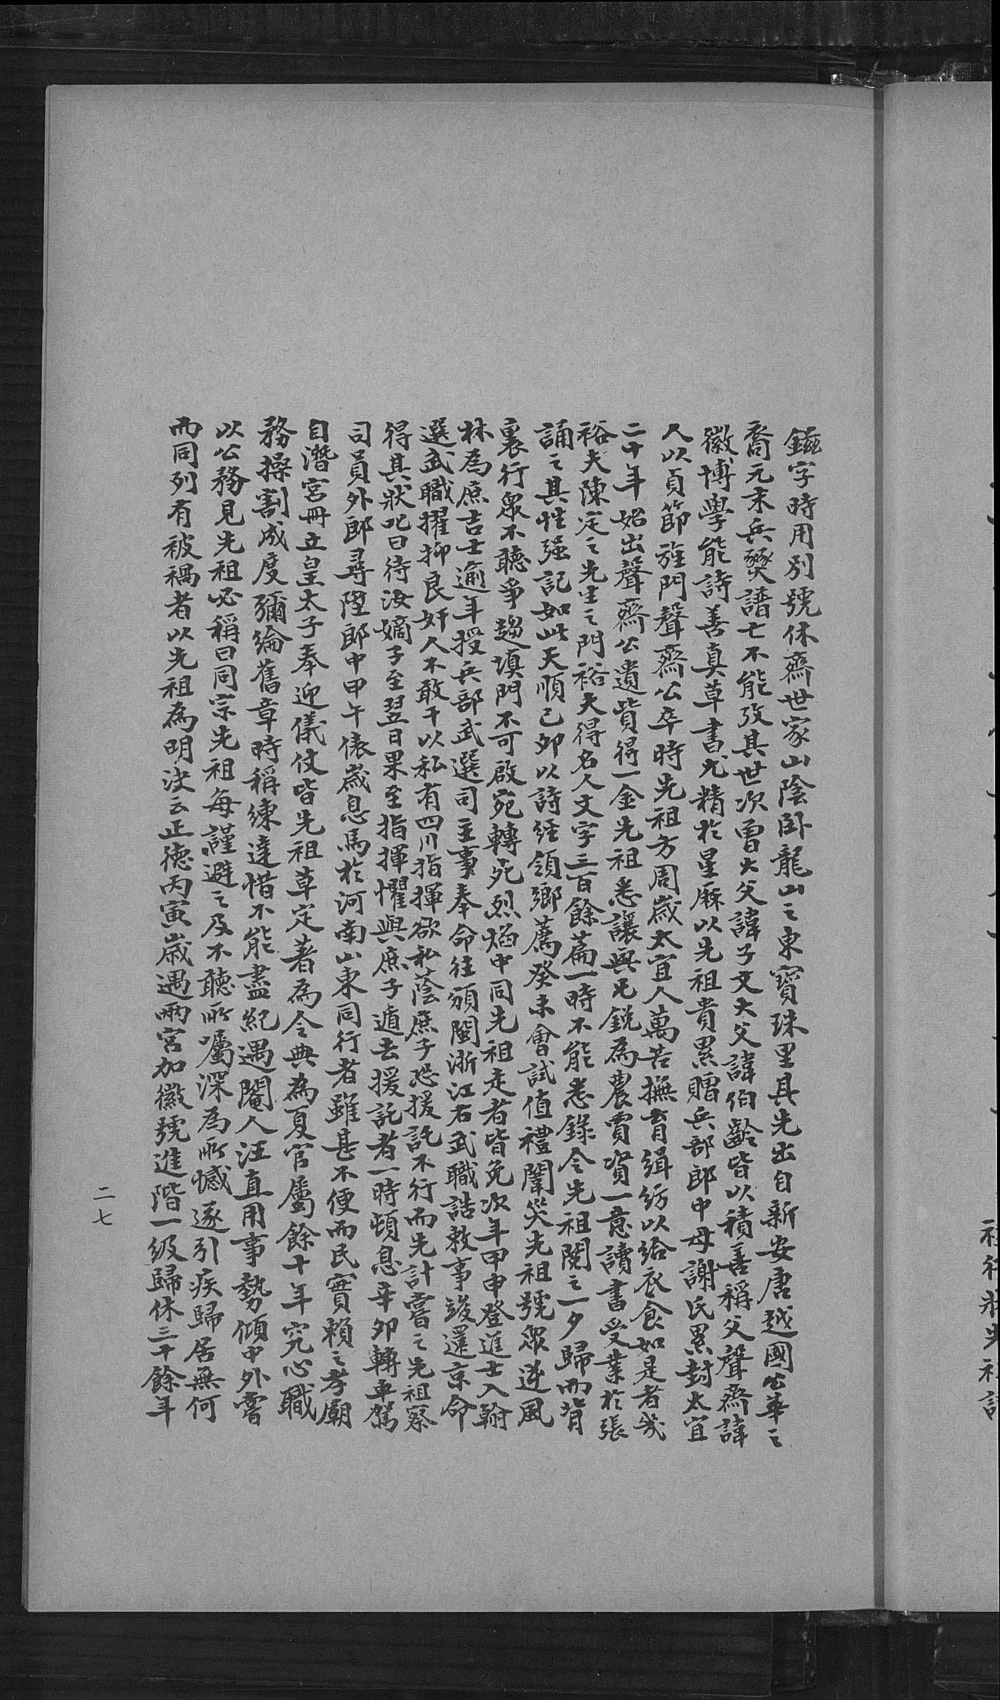 鎡字時用別號休齋世家山陰卧龍山之東寶珠里其先出自新安唐越國公華之
裔元末兵燹譜亡不能攷其世次曾大父諱子文大父諱伯齡皆以積善稱父聲齋諱
徽博學能詩善真草書尤精於星厤以先祖貴累贈兵部郎中母謝氏累封太宜
人以貞節旌門聲齋公卒時先祖方周歲太宜人萬苦撫育緝紡以給衣食如是者幾
二十年始出聲齋公遺貲得一金先祖悉讓與兄鋭為農賈資一意讀書受業於張
裕夫陳定之先生之門裕夫得名人文字三百餘篇一時不能悉錄令先祖閱之一夕歸而背
誦之其性强記如此天順己卯以詩經領鄉薦癸未會試值禮闈災先祖號眾逆風
裏行眾不聽爭趨塡門不可啟宛轉死烈焰中同先祖走者皆免次年甲申登進士入翰
林為庶吉士逾年授兵部武選司主事奉命往頒閩浙江右武職誥敕事竣還京命
選武職擢抑良奸人不敢干以私有四川指揮欲私蔭庶子恐援託不行而先計嘗之先祖察
得其狀叱曰待汝嫡子至翌日果至指揮懼與庶子遁去援託者一時頓息辛卯轉車駕
司員外郎尋陞郎中甲午俵歲息馬於河南山東同行者雖甚不便而民實賴之孝廟
自潛宮冊立皇太子奉迎儀仗皆先祖草定著為令典為夏官屬餘十年究心職
務操割成度彌綸舊章時稱練達惜不能盡紀遇閹人汪直用事勢傾中外嘗
以公務見先祖必稱曰同宗先祖每謹避之及不聽所囑深為所憾遂引疾歸居無何
而同列有被禍者以先祖為明決云正德丙寅歲遇兩宮加徽號進階一級歸休三十餘年
二七